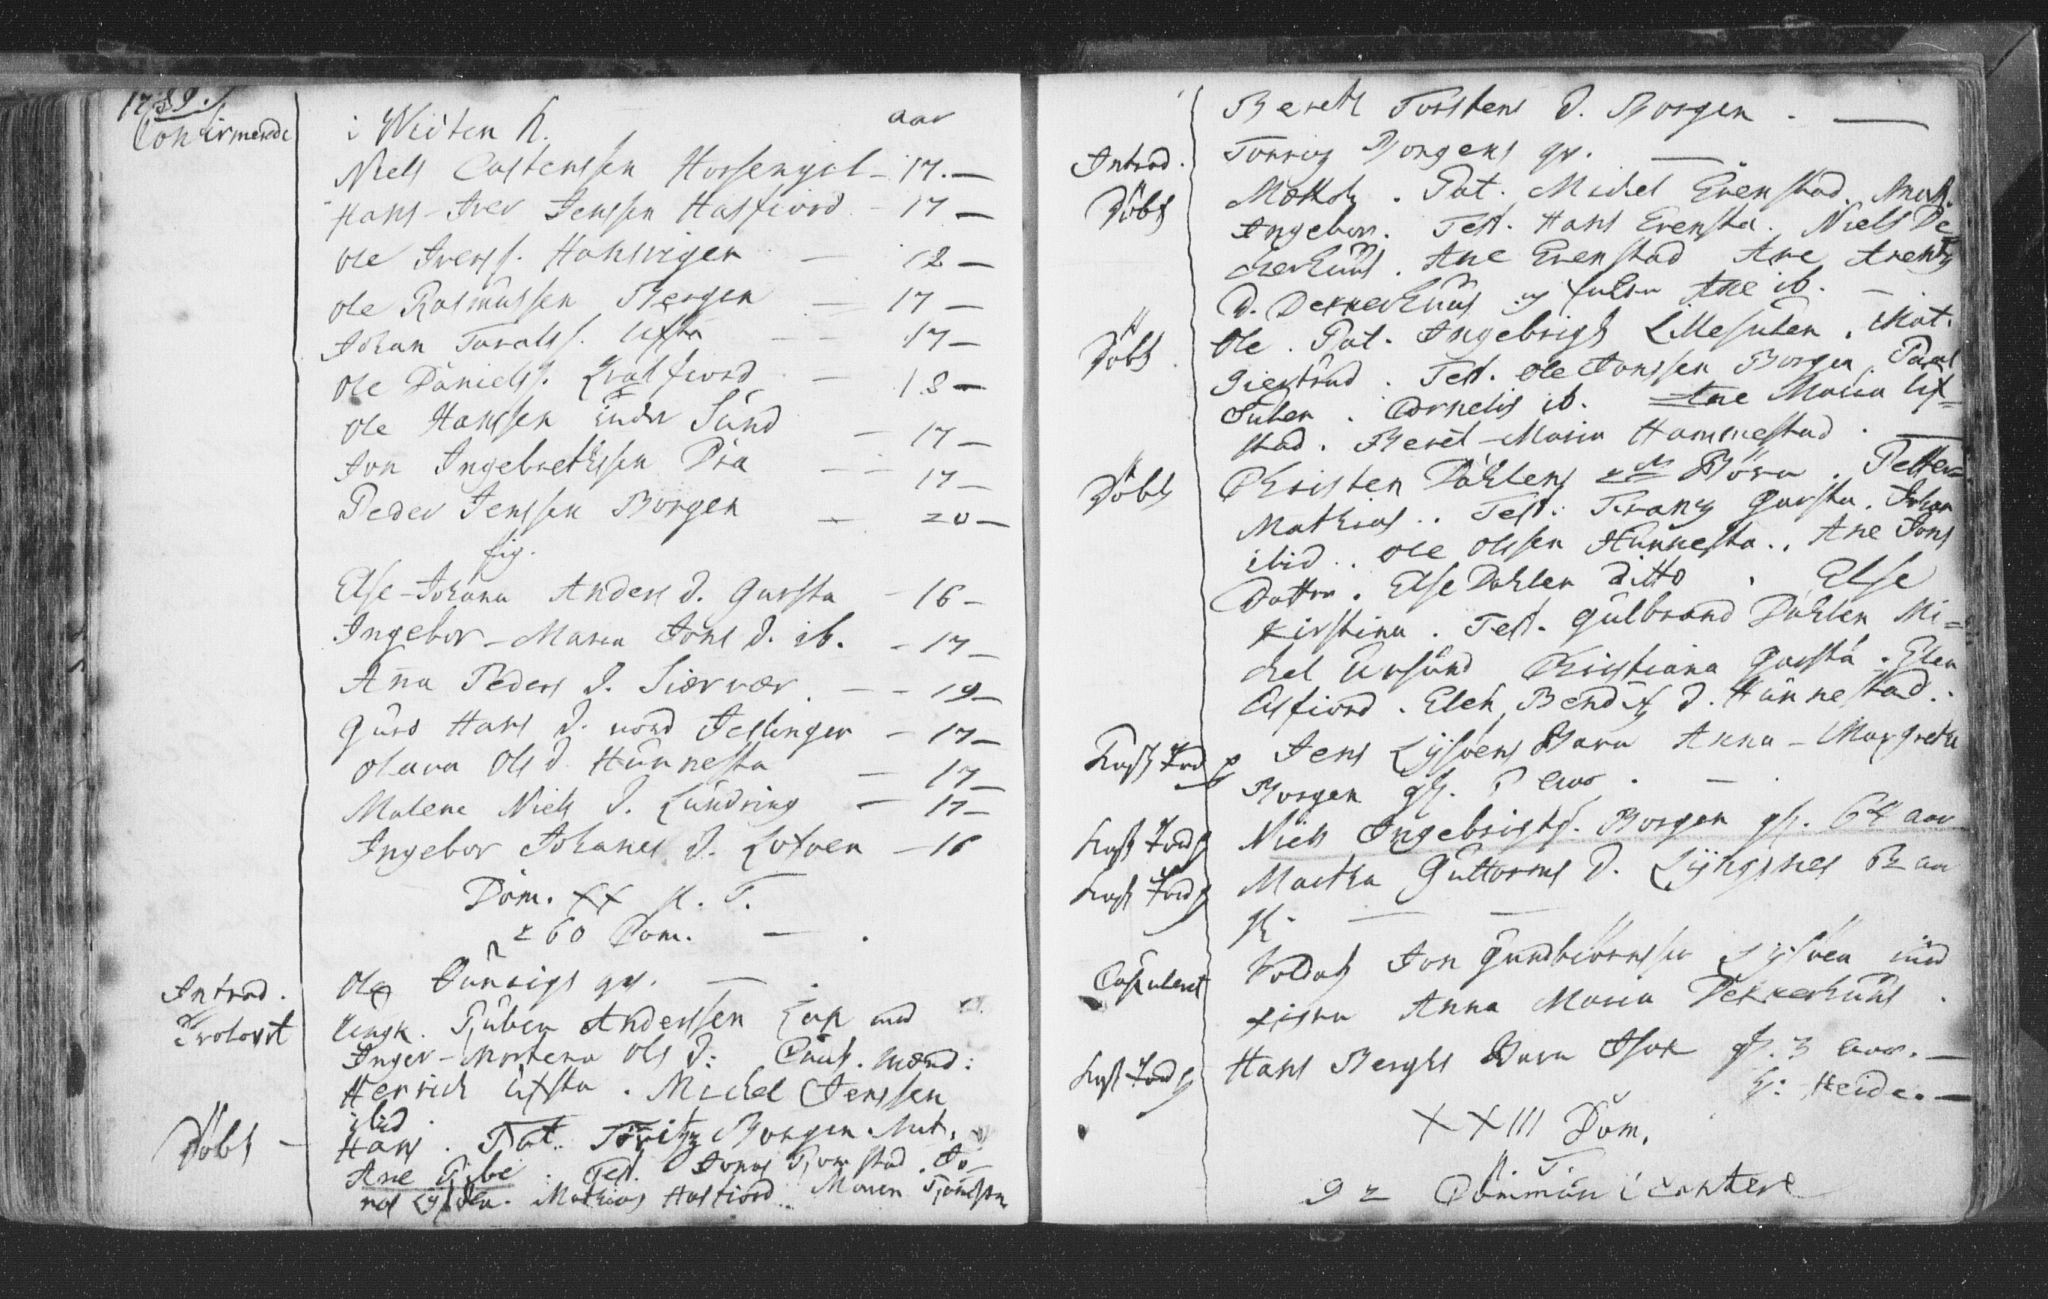 1789.
Confirmerede i Weiten K. aar
Niels Castenssen Horsengiel - 17. -
Hans-Iver Jenssen Hasfiord - 17 -
Ole Iverss. Hansvigen - 18 -
Ole Rasmussen Borgen - 17 -
Johan Taralss. Ufsta - - 17 -
Ole Daniels. Hvalfiord - 18 -
Ole Hanssen Inder Sund - 17 -
Jon Ingebrethssen Præ - - 17 -
Peder Jenssen Borgen - 20 -
pig.
Else-Johana Anders D. Gursta - 16 -
Ingebor-Maria Jons D. ib. - 17 -
Anna Peders D. Siærvær - - 19 -
Guro Hans D. nord Jellinger - 17 -
Olava Ols D. Hünnesta - 17 -
Malene Niels D. Lundring - 17 -
Ingebor Johanes D. Lofoen - 16
Dom. XX p. T.
260 Com. - .
Introd. Ole qv. - .
Trolovet Ungk. Andersen med
Inger-Martena Ols D: Cauk. Mænd:
Henrich Ufsta . Michel Jenssen
ibid.
Döbt - Hans . Pat. Fritz Borgen Mat.
Ane . Test. Jonas Jo-
nas . Mathias Hasfiord . Maren
Bereth Torstens D. Borgen . -
Introd. Borgens qv. -
Döbt . Pat. Michel Evenstad. Mat.
Ingebor. Test. Hans Evensta. Niels De-
cherhuus . Ane Evenstad Ane Arentz
D. Dekkerhuus og Ane ib. -
Döbt Ole . Pat. Ingebrigt Lillesulen . Mat.
Giertrud . Test. Ole Jonssen Borgen, Paal
Sulen . Cornelis ib. Ane Maria Uf-
stad . Beret-Maria Hammestad . -
Döbt Christen Dahlens 2de Börn . Petter-
Mathias . Test. Frantz Gursta . Johan
ibid . Ole Olssen Hünnesta . Ane Jons
Datter . Else Dahlen ditto . Else
Kirstina . Test. Gulbrand Dahlen Mi-
chel Ursund Christiana Gursta . Elen
Asfiord . Elen Bendix D. Hünnestad .
Jens Lysöens Barn Anna-Margreta
Borgen gl. aar . -
Niels Ingebrights. Borgen gl. 64 aar
Martha Guttorms D. Lyngsnes 82 aa
gl. - -
Copuleret Soldat Jon Gundbiörnsen Lysöen med
Anna Maria Dekkerhuus .
Hans Berghs Barn Isak gl. 3 aar. -
H: Heide. -
XXIII Dom.
p. T.
92 Communicantere